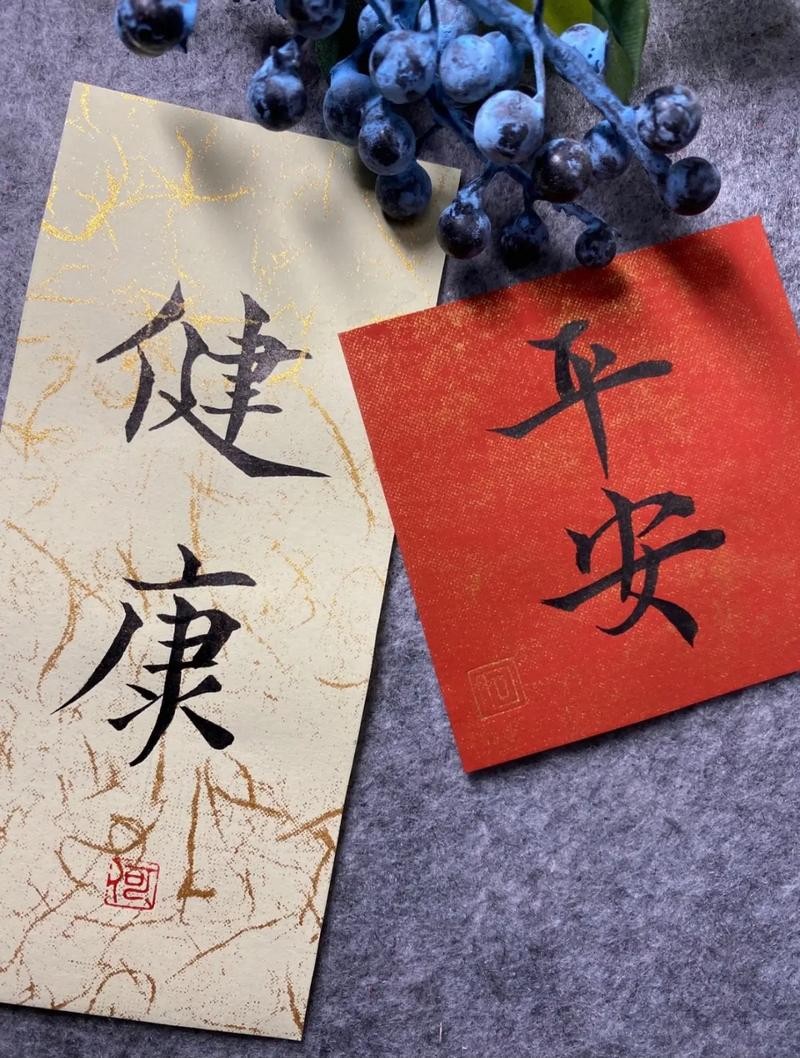 健
康
何
平
安
何